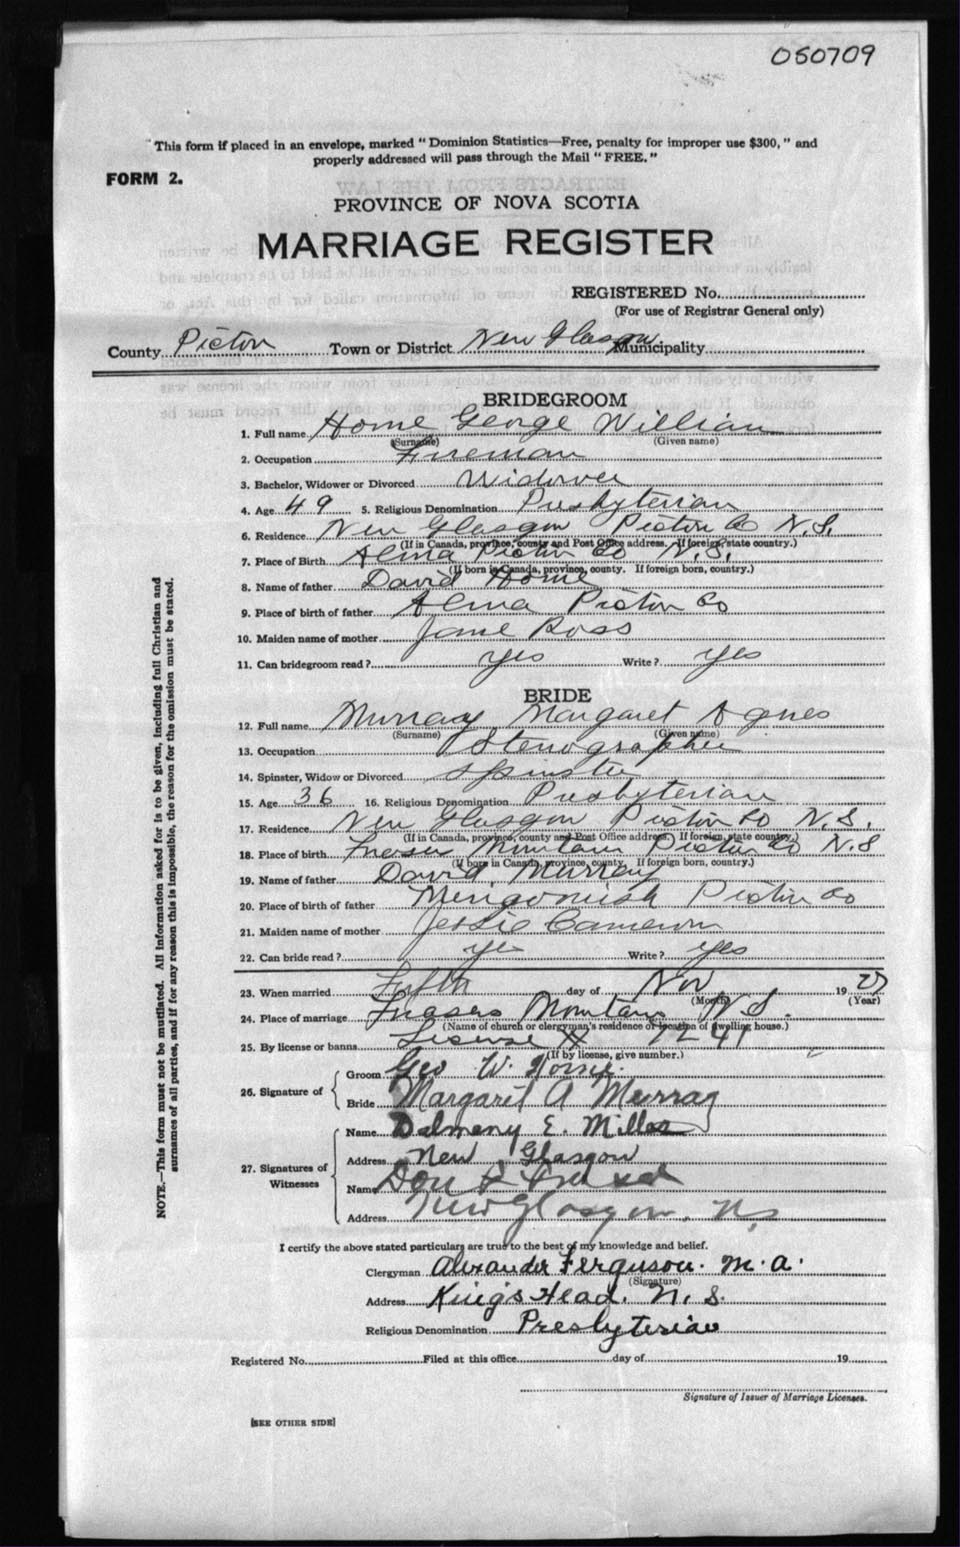 050709
This form if placed in an envelope, marked "Dominion Statistics—Free, penalty for improper use $300," and
properly addressed will pass through the Mail "FREE."
FORM 2.
PROVINCE OF NOVA SCOTIA
MARRIAGE REGISTER
REGISTERED No.
(For use of Registrar General only)
County Pictou Town or District New Glasgow Municipality
BRIDEGROOM
1. Full name Horne George William
(Surname) (Given name)
2. Occupation Fireman
3. Bachelor, Widower or Divorced Widower
4. Age 49 5. Religious Denomination Presbyterian
6. Residence New Glasgow Pictou Co N.S.
(If in Canada, province, county and Post Office address. If foreign, state country.)
7. Place of Birth Alma Pictou Co N.S.
(If born in Canada, province, county. If foreign born, country.)
8. Name of father David Horne
9. Place of birth of father Alma Pictou Co
10. Maiden name of mother Jane Ross
11. Can bridegroom read? yes Write? yes
BRIDE
12. Full name Murray Margaret Agnes
(Surname) (Given name)
13. Occupation Stenographer
14. Spinster, Widow or Divorced Spinster
15. Age 36 16. Religious Denomination Presbyterian
17. Residence New Glasgow Pictou Co N.S.
(If in Canada, province, county and Post Office address. If foreign, state country.)
18. Place of birth Fraser Mountain Pictou Co N.S
(If born in Canada, province, county. If foreign born, country.)
19. Name of father David Murray
20. Place of birth of father Merigomish Pictou Co
21. Maiden name of mother Jessie Cameron
22. Can bride read? yes Write? yes
23. When married Fifth day of Nov 1927
(Month) (Year)
24. Place of marriage Frasers Mountain N.S.
(Name of church or clergyman's residence or location of dwelling house.)
25. By license or banns License 7241
(If by license, give number.)
26. Signature of
Groom Geo W. Horne.
Bride Margaret A Murray
27. Signatures of Witnesses
Name Dalmeny E. Miller
Address New Glasgow
Name Don
Address New Glasgow, N.S
I certify the above stated particulars are true to the best of my knowledge and belief.
Clergyman Alexander Ferguson. M.A.
(Signature)
Address King's Head. N.S.
Religious Denomination Presbyterian
Registered No. Filed at this office day of 19
Signature of Issuer of Marriage Licenses.
[SEE OTHER SIDE]
NOTE.—This form must not be mutilated. All information asked for is to be given, including full Christian and
surnames of all parties, and if for any reason this is impossible, the reason for the omission must be stated.